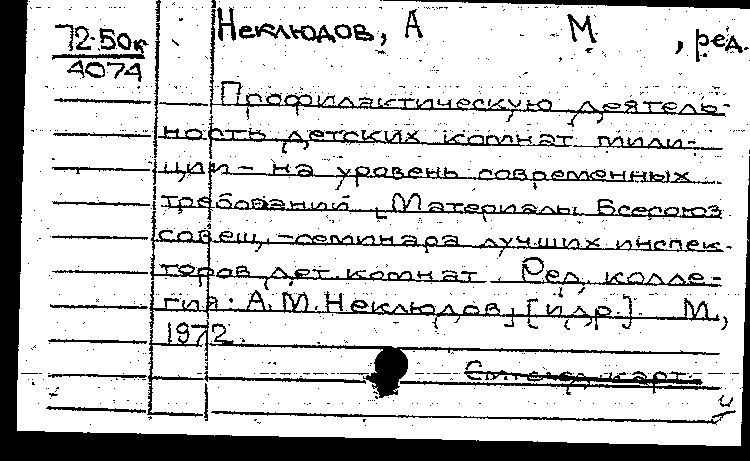 72-50к
4074
Неклюдов, А М , ред.
Профилактическую деятель-
ность детских комнат мили-
ции - на уровень современных
требований [Материалы Всесоюз
совещ.-семинара лучших инспек-
торов дет. комнат. Ред. колле-
гия: А.М. Неклюдов] [и др.] М.,
1972.
карт.